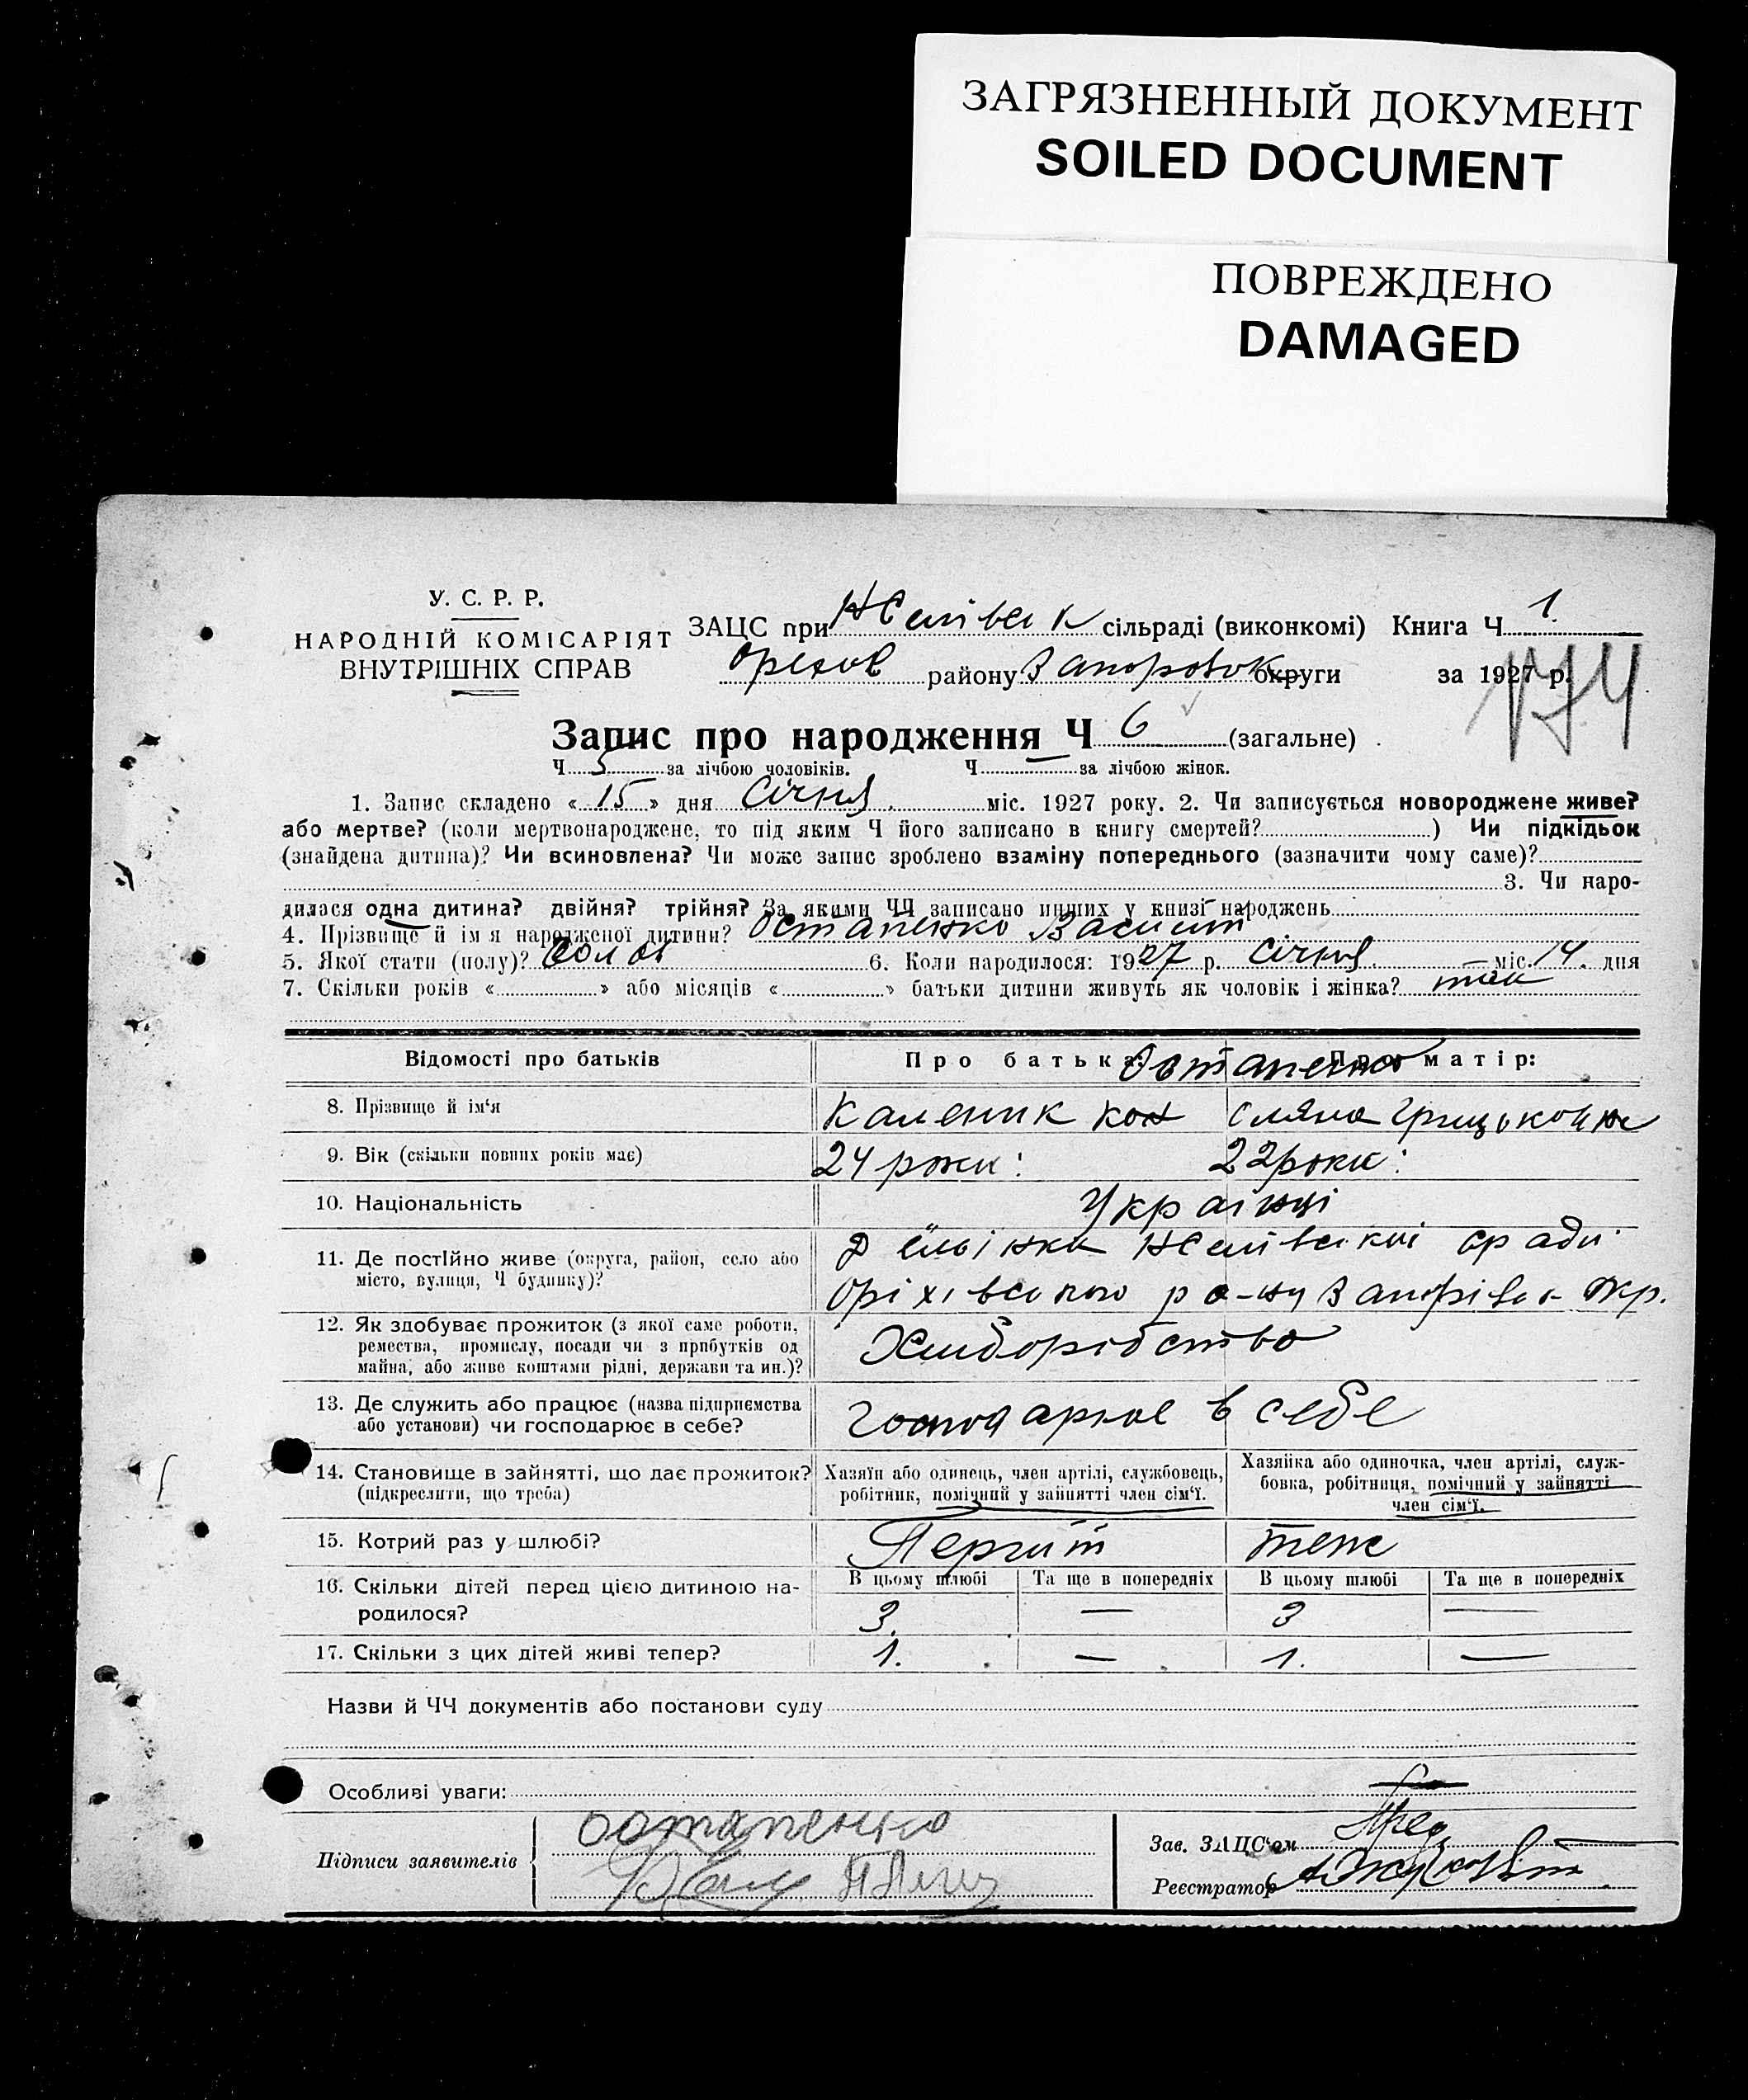 ЗАГРЯЗНЕННЫЙ ДОКУМЕНТ
SOILED DOCUMENT
ПОВРЕЖДЕНО
DAMAGED
У. С. Р. Р.
НАРОДНІЙ КОМІСАРІЯТ
ВНУТРІШНІХ СПРАВ
ЗАЦС при сільраді (виконкомі) Книга Ч 1
Орехов району Запорожок округи за 1927 р.
174
Запис про народження Ч 6 (загальне)
Ч 5 за лічбою чоловіків. Ч — за лічбою жінок.
1. Запис складено « 15 » дня Січня міс. 1927 року. 2. Чи записується новороджене живе?
або мертве? (коли мертвонароджене, то під яким Ч його записано в книгу смертей?) Чи підкідьок
(знайдена дитина)? Чи всиновлена? Чи може запис зроблено взаміну попереднього (зазначити чому саме)?
3. Чи наро-
дилася одна дитина? двійня? трійня? За якими ЧЧ записано инших у книзі народжень
4. Прізвище й ім я народженої дитини? Остапенко Василь
5. Якої стати (полу)? 6. Коли народилося: 1927 р. Січня міс. 14. дня
7. Скільки років « » або місяців « » батьки дитини живуть як чоловік і жінка?
Відомості про батьків Про батька: Про матір:
Остапенко
8. Прізвище й ім‘я Каленик Кон
9. Вік (скільки повних років має) 24 роки: 22 роки:
10. Національність Українці
11. Де постійно живе (округа, район, село або
місто, вулиця, Ч будинку)?
Оріхівського ра-ну Запоріз. Окр.
12. Як здобуває прожиток (з якої саме роботи,
ремества, промислу, посади чи з прибутків од
майна, або живе коштами рідні, держави та ин.)?
Хліборобство
13. Де служить або працює (назва підприємства
або установи) чи господарює в себе?
Господарює в себе
14. Становище в зайнятті, що дає прожиток?
(підкреслити, що треба)
Хазяїн або одинець, член артілі, службовець,
робітник, помічний у зайнятті член сім‘ї.
Хазяйка або одиночка, член артілі, служ-
бовка, робітниця, помічний у зайнятті
член сім‘ї.
15. Котрий раз у шлюбі? Перший теж
16. Скільки дітей перед цією дитиною на-
родилося?
В цьому шлюбі Та ще в попередніх В цьому шлюбі Та ще в попередніх
3. — 3 —
17. Скільки з цих дітей живі тепер? 1. — 1. —
Назви й ЧЧ документів або постанови суду
Особливі уваги:
Підписи заявителів Остапенко
Зав. ЗАЦС‘ом
Реєстратор